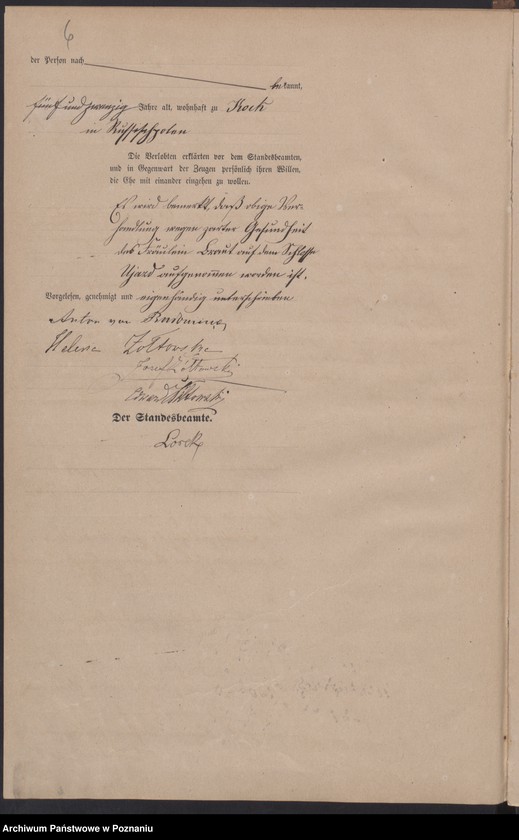 6
der Person nach
be kannt,
fünf und zwanzig Jahre alt, wohnhaft zu Kock
in Russischpolen
Die Verlobten erklärten vor dem Standesbeamten,
und in Gegenwart der Zeugen persönlich ihren Willen,
die Ehe mit einander eingehen zu wollen.
Es wird bemerkt, daß obige Ver-
handlung wegen zarter Gesundheit
des Fräulein Braut auf dem Schlosse
Ujazd aufgenommen worden ist.
Vorgelesen, genehmigt und eigenhändig unterschrieben
Anton von
Helene Żołtowska
Żółtowski
Żółtowski
Der Standesbeamte.